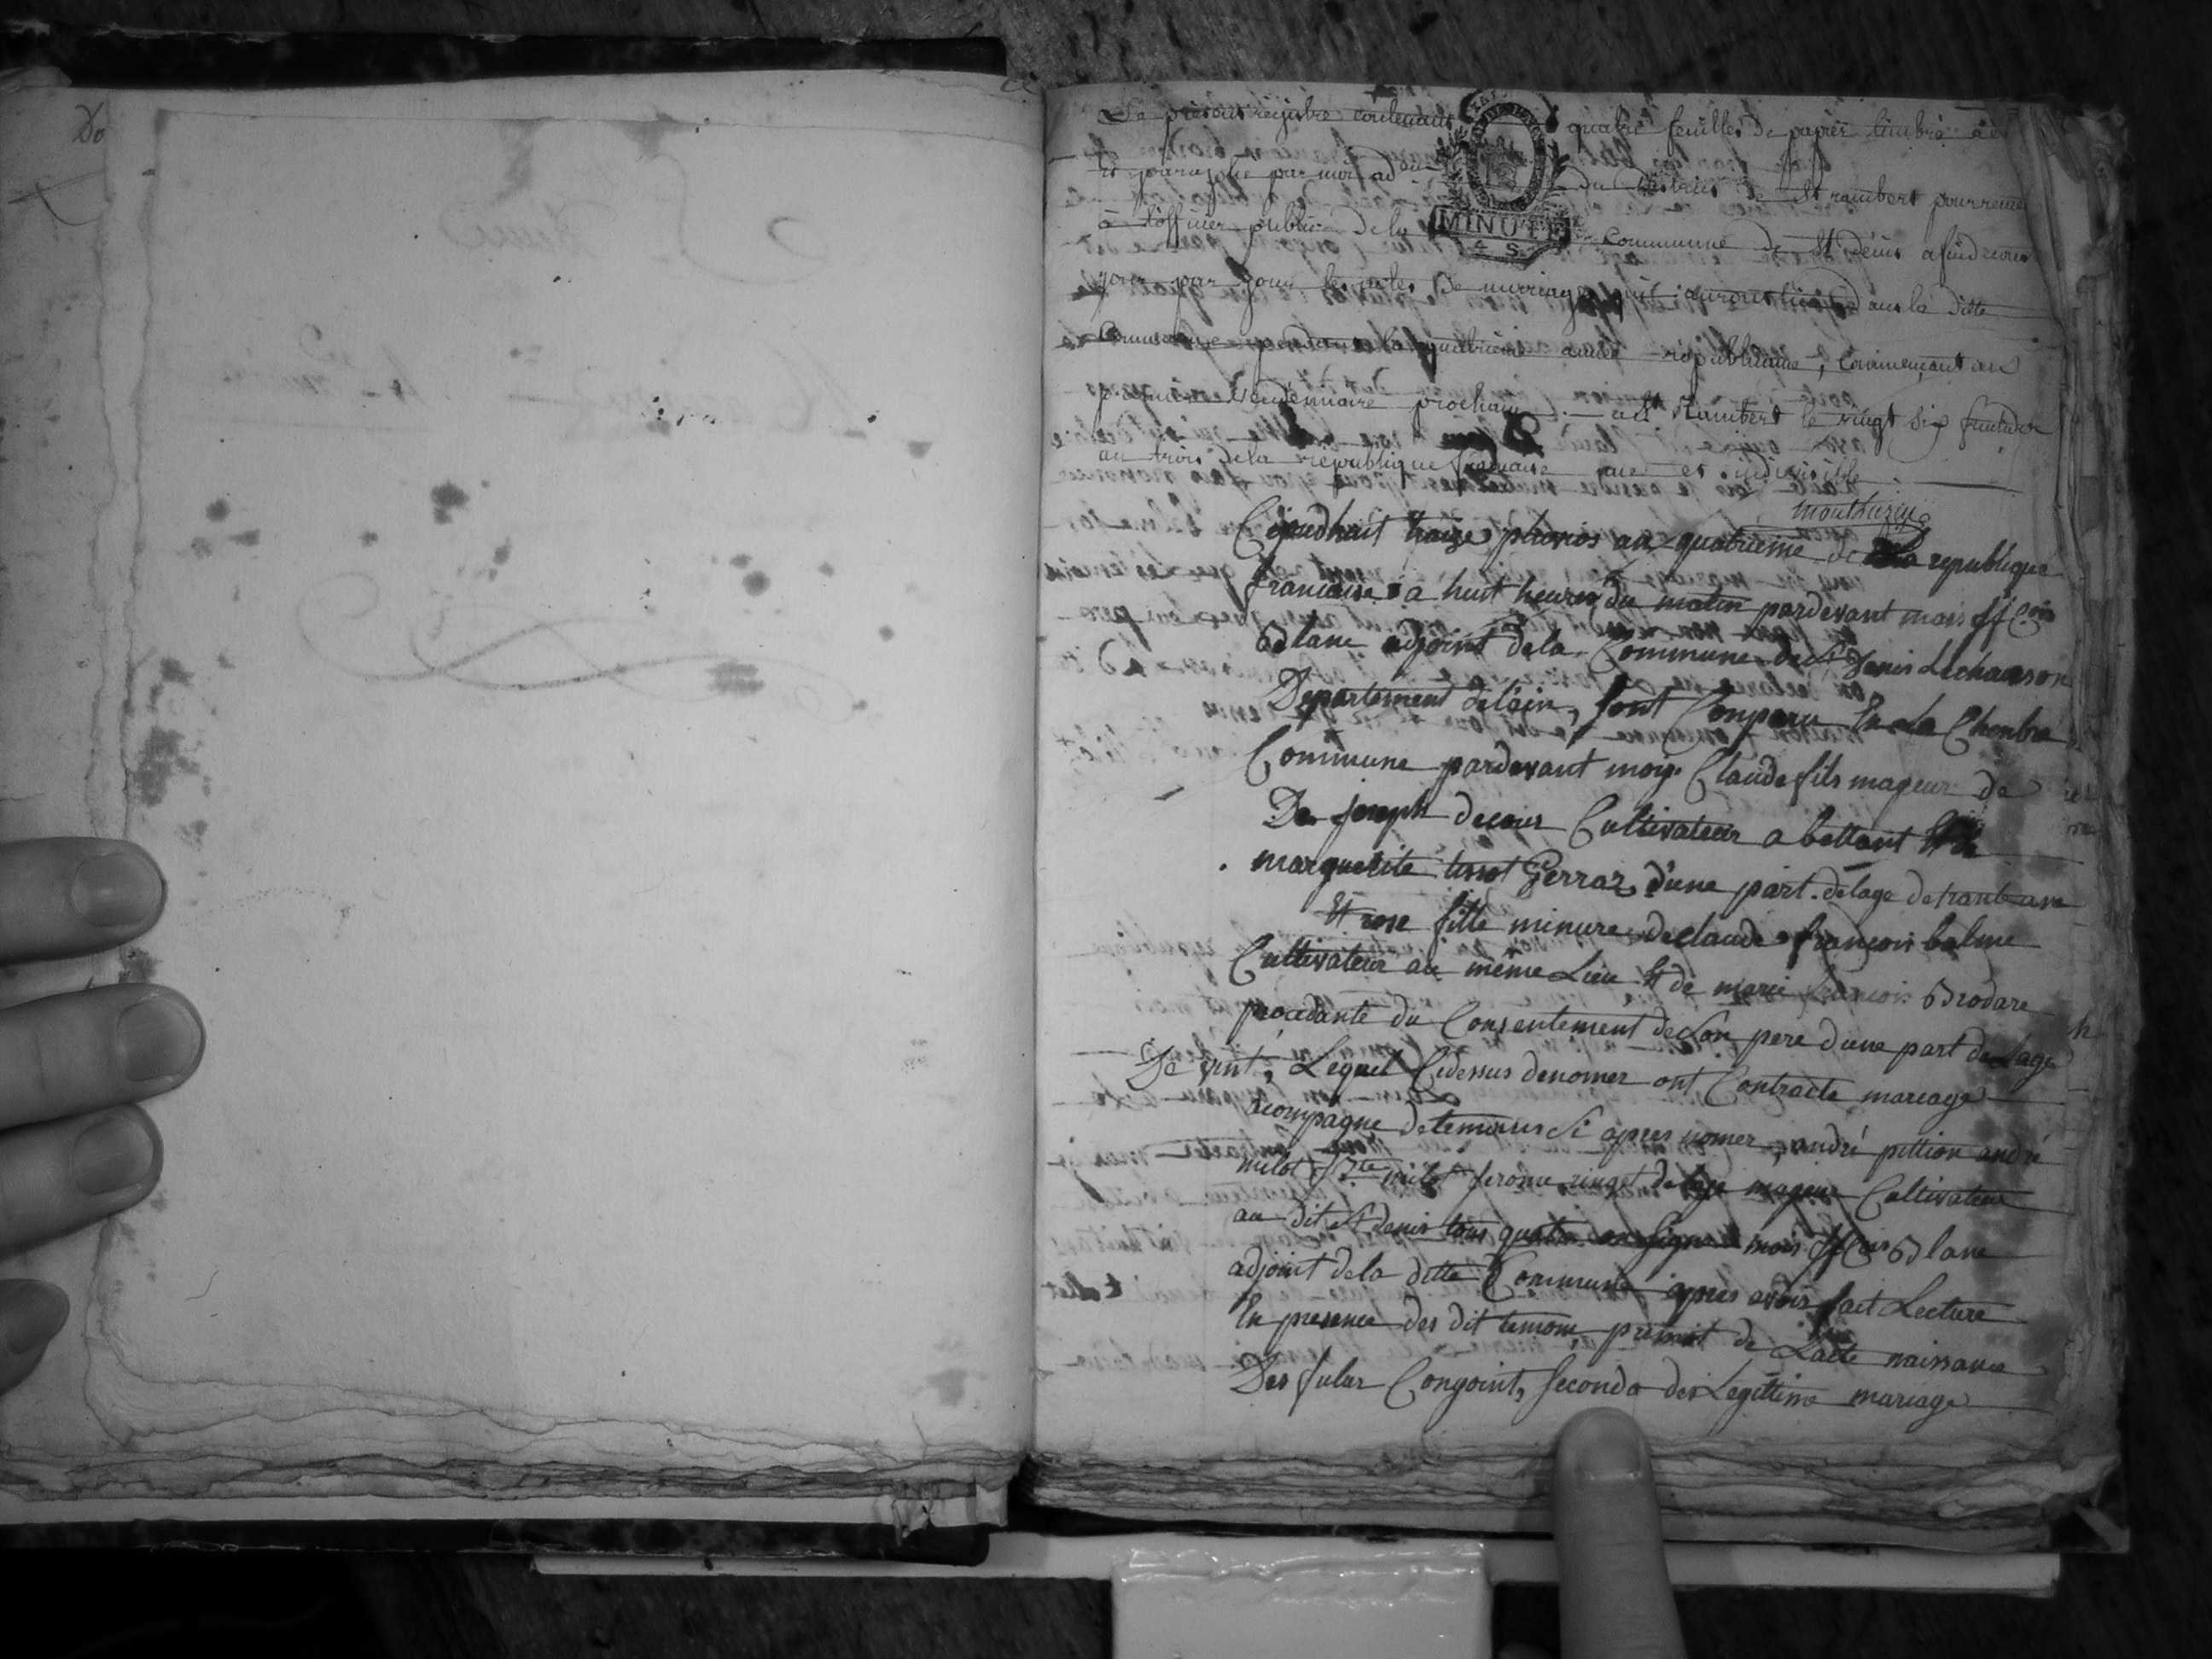 Le présent régistre contenant quatre feuilles de papier timbré a été
et paraphé par moi ad du District de St rambert pour remé
à l'officier public de la commune de St Denis afin d'ecrire
MINUTE
4 S.
jour par jour les actes de mariage qui auront lieu Dans la ditte
Commune pendant la quatrieme année républicaine, Commençant au
premier Vendemiaire prochain. — a St Rambert le vingt six fructidor
an trois de la république française une et indivisible.
Cejourdhuit traize pluvios an quatrieme de la republique
francaise a huit heures du matin pardevant mois ff Cois
Blanc adjoint de la Commune de St Denis Le chauson
Departement de lain, sont Conparu En la Chenbre
Commune pardevant moy. Claude fils mageur de
De joseph decour Cultivateur a bettant Et de
marguerite tissot Gerraz d'une part. de lage de trante ans
Et rose fille minure de claude francois balme
Cultivateur au même Lieu Et de marie francois Brodare
procedante du Consentement de son pere d'une part de Lage
De vint, Lequel Cidessus denomer ont Contracte mariage
acompagne de temoins Si apres nomer, andré pittion andré
milot J. Bte milot Jerome ringet de lage mageur Cultivateur
au dit St denis tous quatre mois ff Cois Blanc
adjoint de la ditte Commune apres avoir fait Lecture
En presence des dit temoin, primoit de Lacte naissance
Des futur Congoint, Secondo des Legitime mariage